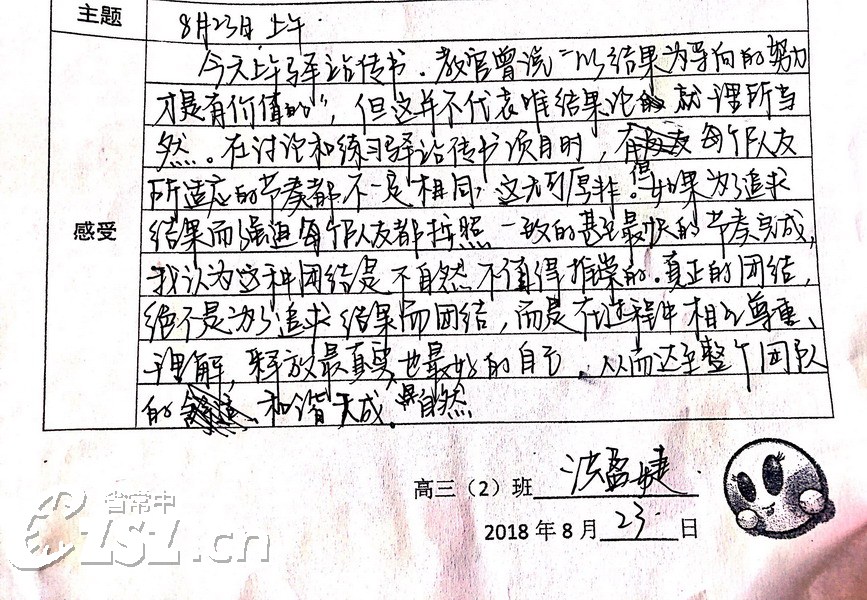 主题
8月23日 上午
今天上午驿站传书。教官曾说“以结果为导向的努力
才是有价值的”，但这并不代表唯结果论就理所当
然。在讨论和练习驿站传书项目时，每个队友
所适应的节奏都不一定相同，这无可厚非。但如果为了追求
感受
结果而强迫每个队友都按照一致的甚至最快的节奏完成，
我认为这种团结是不自然不值得推崇的。真正的团结，
绝不是为了追求结果而团结，而是在过程中相互尊重、
理解，释放最真实、也最好的自己，从而达至整个团队
的和谐天成、自然
高三（2）班
盈婕
2018 年 8 月 23 日
省常中
CZSZ.cn